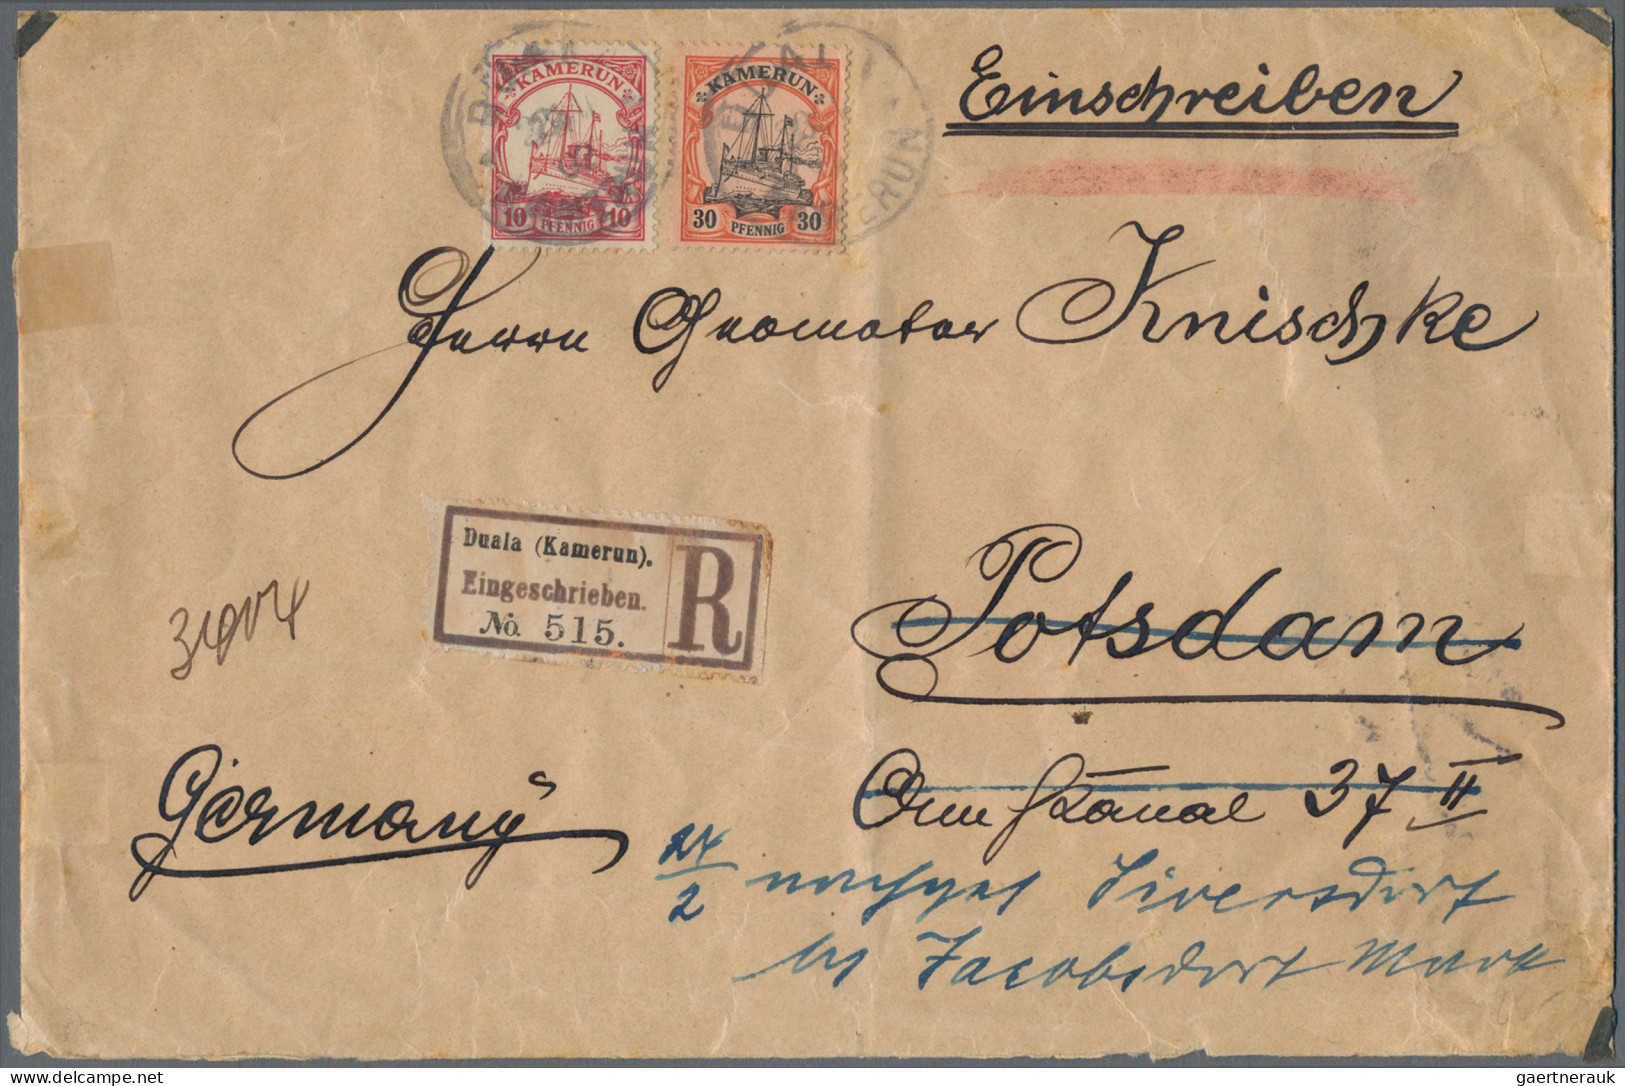 KAMERUN
10 PFENNIG 10
KAMERUN
30 PFENNIG 30
DUALA
KAMERUN
Einschreiben
Herrn Geometer Knischke
Duala (Kamerun).
Eingeschrieben.
No. 515.
R
Potsdam
Germany
Am Kanal 37 II
24/2 nachges Siversdorf
bei Jacobsdorf Mark
gaertnerauk